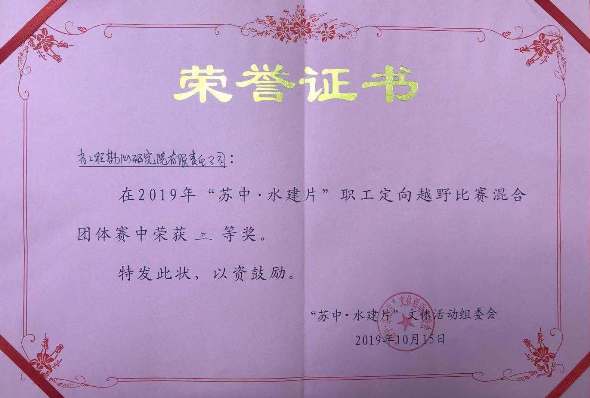 荣誉证书
工程勘测研究院有限责任公司：
在2019年“苏中·水建片”职工定向越野比赛混合
团体赛中荣获 等奖。
特发此状，以资鼓励。
“苏中·水建片”文体活动组委会
2019年10月15日